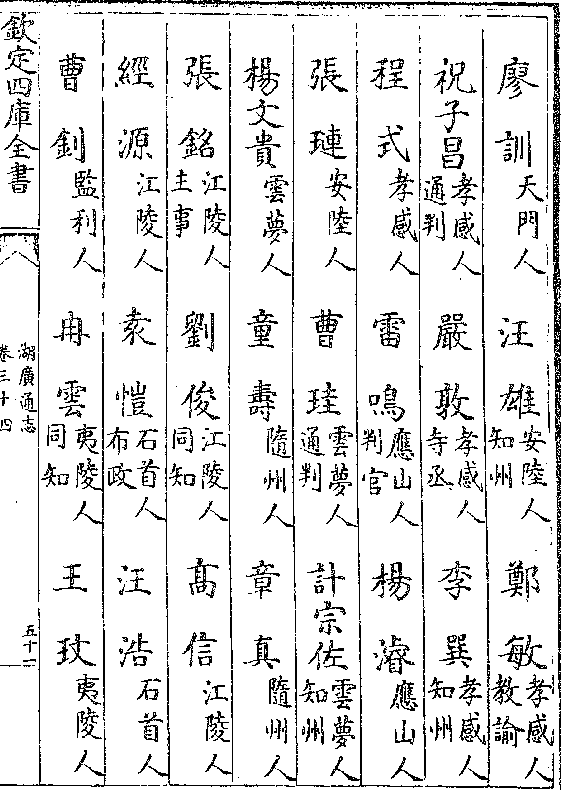 廖訓天門人 汪雄安陸人知州 鄭敏孝感人教諭
祝子昌孝感人通判 嚴敦孝感人寺丞 李巽孝感人知州
程式孝感人 雷鳴應山人判官 楊濬應山人
張璉安陸人 曹珪雲夢人通判 計宗佐雲夢人知州
楊文貴雲夢人 童壽隨州人 章真隨州人
張銘江陵人主事 劉俊江陵人同知 高信江陵人
經源江陵人 袁愷石首人布政 汪浩石首人
曹釗監利人 冉雲夷陵人同知 王玟夷陵人
欽定四庫全書
湖廣通志
卷三十四